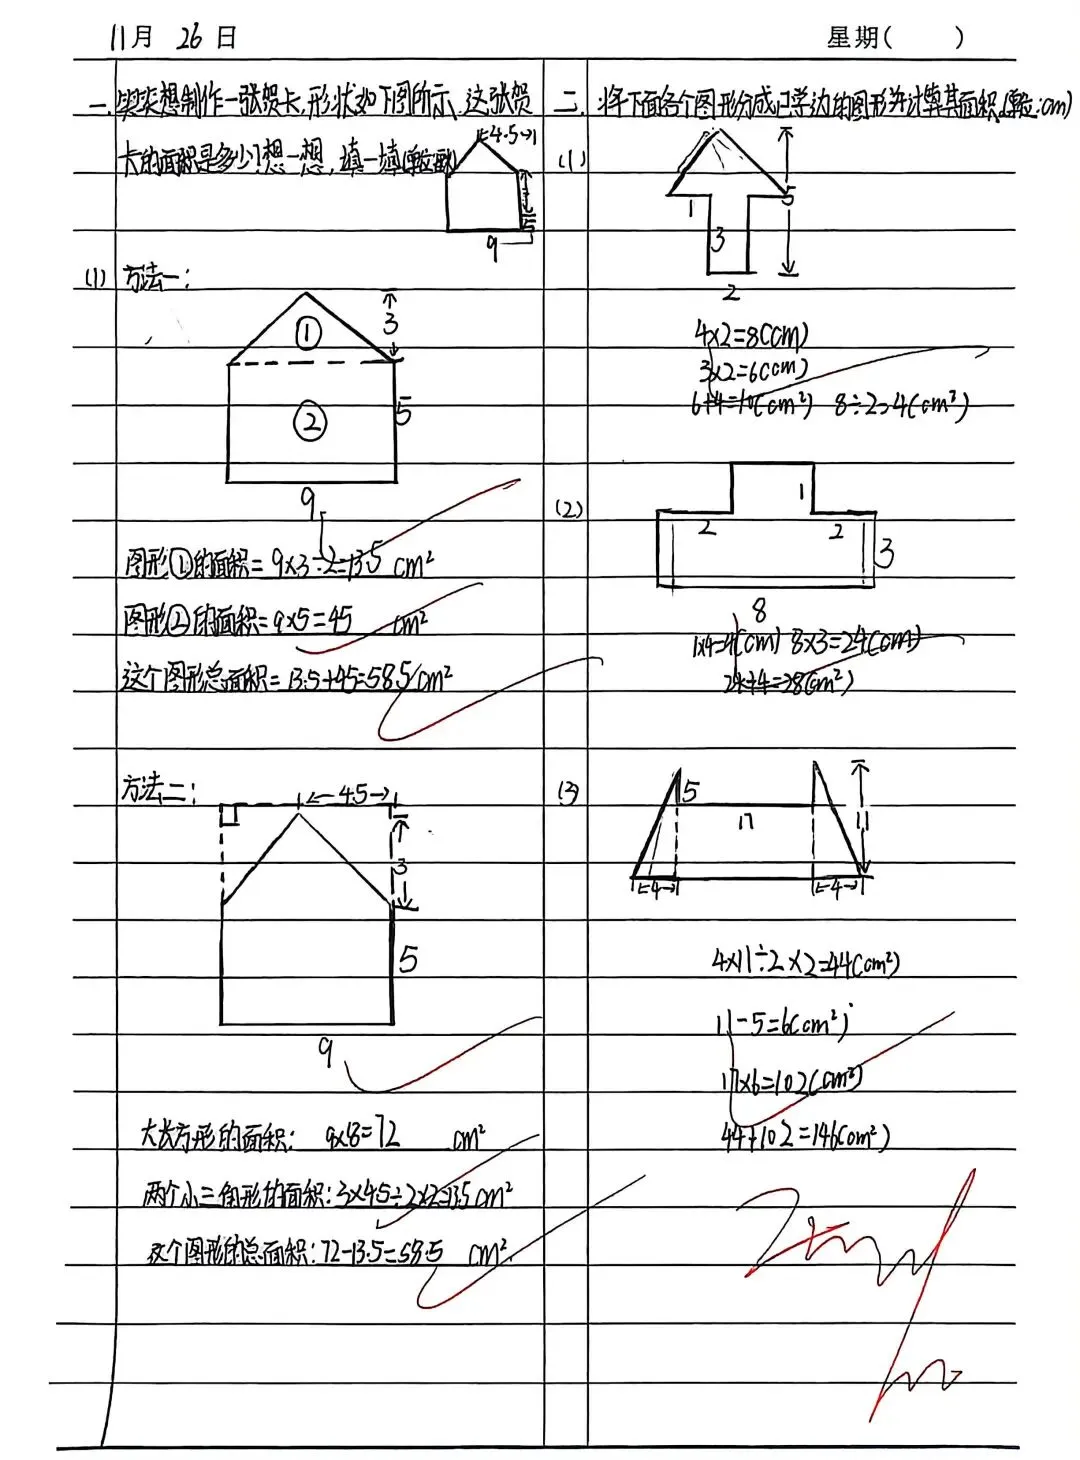 11月 26日
星期( )
一. 奖奖想制作一张贺卡,形状如下图所示.这张贺
卡的面积是多少?想一想,填一填
4.5
5
9
(1) 方法一:
①
3
②
5
9
图形①的面积=9×3÷2=13.5 cm²
图形②的面积=9×5=45 cm²
这个图形总面积=13.5+45=58.5 cm²
方法二:
4.5
3
5
9
大长方形的面积: 9×8=72 cm²
两个小三角形的面积:3×4.5÷2×2=13.5cm²
这个图形的总面积:72-13.5=58.5 cm²
二. 将下面各个图形分成已学边的图形并计算其面积.(单位:cm)
(1)
1
3
5
2
4×2=8(cm)
3×2=6(cm)
6+4=10(cm²) 8÷2=4(cm²)
(2)
1
2 2
3
8
1×4=4(cm) 8×3=24(cm)
24+4=28(cm²)
(3)
5
17
11
4 4
4×11÷2×2=44(cm²)
11-5=6(cm²)
17×6=102(cm²)
44+102=146(cm²)